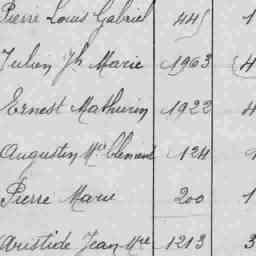 Pierre Louis Gabriel 445 1
Julien Jh Marie 1963 4
Ernest Mathurin 1922 4
Augustin Mie Clément 124
Pierre Marie 200 1
Aristide Jean Mie 1213 3